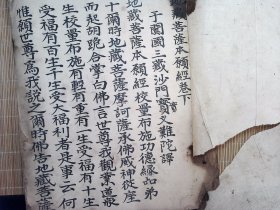 藏菩薩本願經卷下
于闐國三藏沙門實叉難陀譯
地藏菩薩本願經校量布施功德緣品弟
十爾時地藏菩薩摩訶薩承佛威神從座
而起胡跪合掌白佛言世尊我觀業道衆
生校量布施有輕有重有一生受福有十生
受福有百生千生受大福利者是事云何
惟願世尊爲我說之爾時佛告地藏菩薩